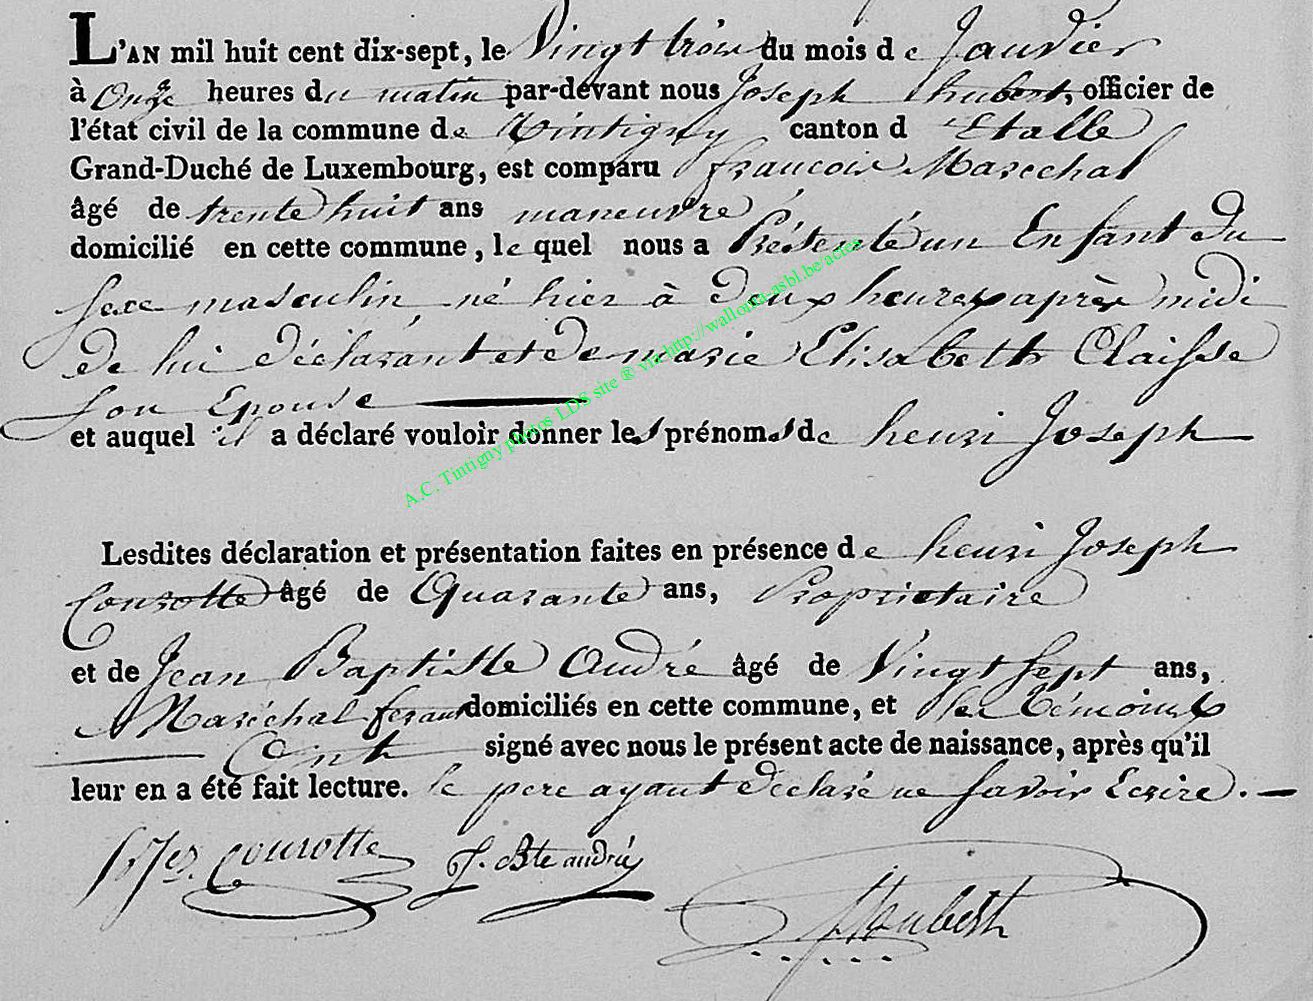 L'AN mil huit cent dix-sept, le Vingt trois du mois de Janvier
à Onze heures du matin par-devant nous Joseph hubert, officier de
l'état civil de la commune de Tintigny canton d'Etalle
Grand-Duché de Luxembourg, est comparu francois Marechal
âgé de trente huit ans maneuvre
domicilié en cette commune, lequel nous a Présenté un Enfant du
sexe masculin, né hier à deux heures après midi
de lui déclarant et de marie Elisabeth Claisse
son Epouse
et auquel il a déclaré vouloir donner les prénoms de henri Joseph
Lesdites déclaration et présentation faites en présence de henri Joseph
Courotte âgé de Quarante ans, Proprietaire
et de Jean Baptiste André âgé de Vingt sept ans,
Maréchal ferant domiciliés en cette commune, et les témoins
ont signé avec nous le présent acte de naissance, après qu'il
leur en a été fait lecture. le pere ayant déclaré ne savoir Ecrire.
Courotte J. Bte andré
Houbert
A.C. Tintigny photos LDS site ® via http://wallonia-asbl.be/actes